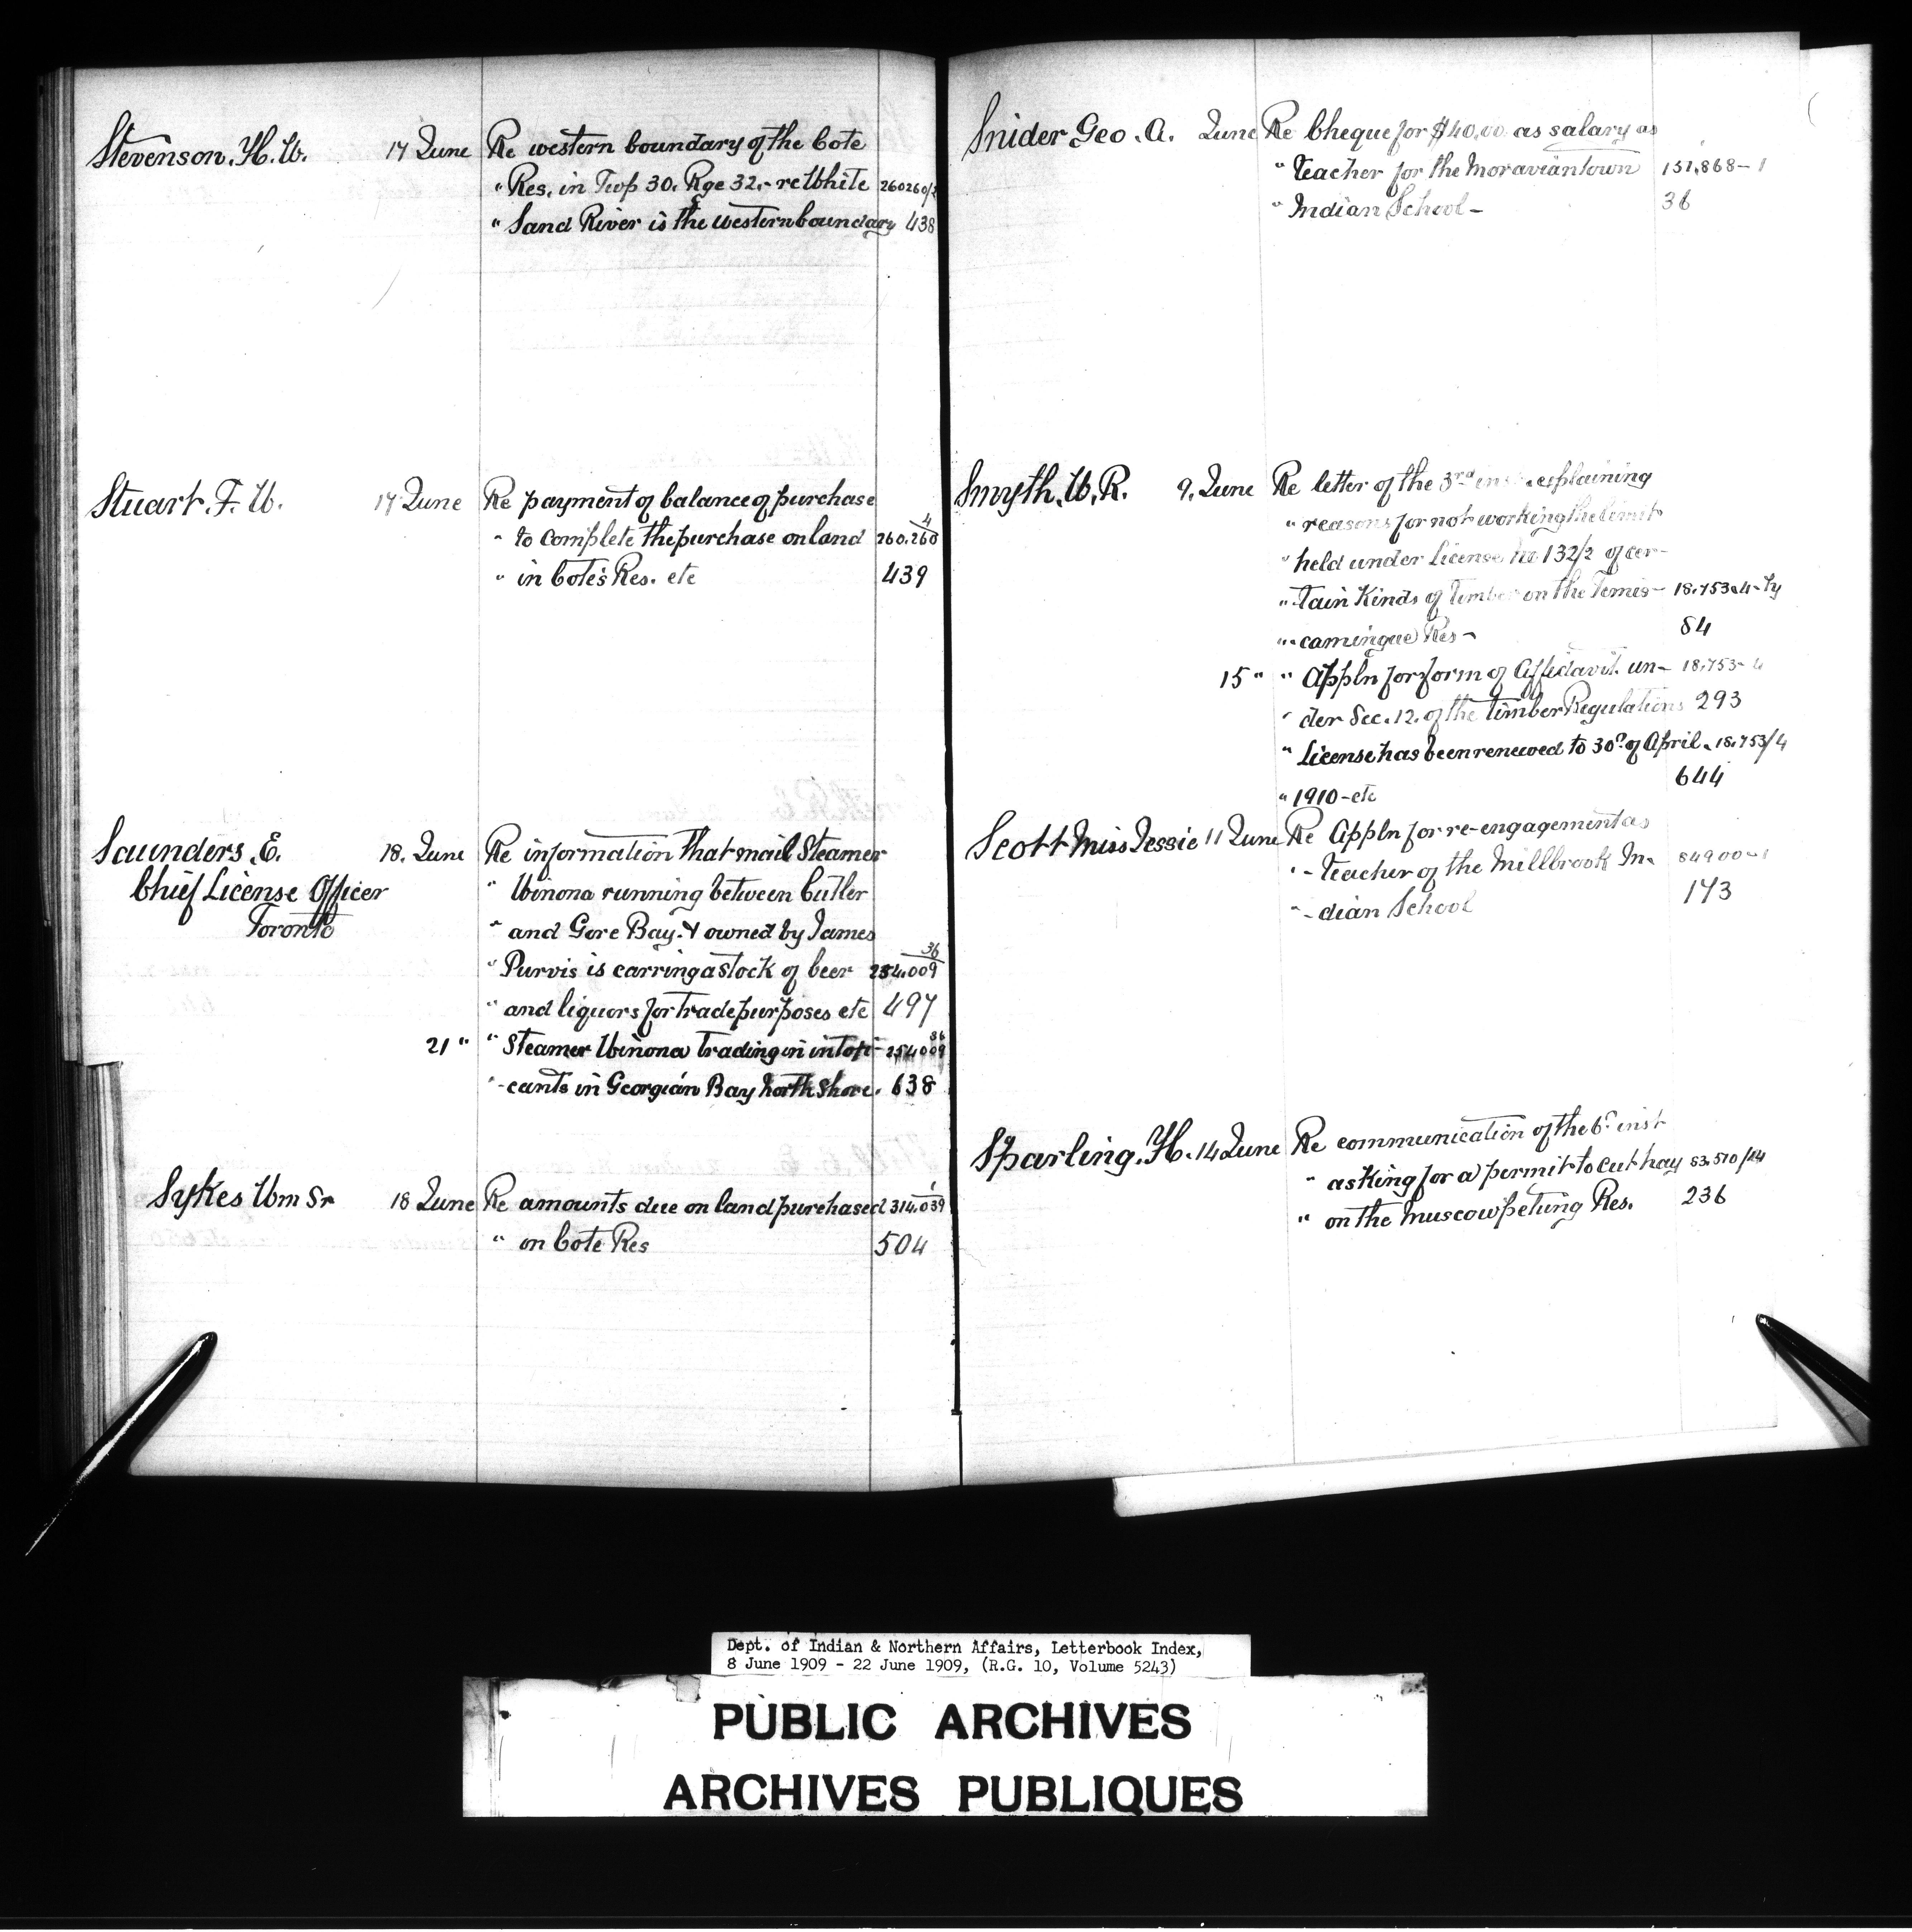 Stevenson. H. W. 17 June Re western boundary of the Cote
" Res. in Twp 30. Rge 32. - re White 260260/2
" Sand River is the western boundary 438
Stuart. F. W. 17 June Re payment of balance of purchase
" to complete the purchase on land 260.260/4
" in Cote's Res. etc 439
Saunders. E. 18. June Re information that mail Steamer
Chief License Officer " Winona running between Cutler
Toronto " and Gore Bay. & owned by James
" Purvis is carring a stock of beer 254.009 36
" and liquors for trade purposes etc 497
21 " " Steamer Winona trading in intoxi- 254009 36
" - cants in Georgian Bay North Shore. 638
Sykes Wm Sr 18 June Re amounts due on land purchased 314.039 1
" on Cote Res 504
Snider Geo. A. June Re Cheque for $40.00 as salary as
" teacher for the Moraviantown 151,868-1
" Indian School - 36
Smyth. W. R. 9. June Re letter of the 3rd inst. explaining
" reasons for not working the limit
" held under License No 132/2 of cer-
" tain Kinds of timber on the Temis- 18.753-4-
" camingue Res - 84
15 " " Appln for form of Affidavit un- 18.753-4
" der Sec. 12. of the timber Regulations 293
" License has been renewed to 30th of April. 18.753/4
" 1910 - etc 644
Scott Miss Jessie 11 June Re Appln for re-engagement as
" - teacher of the Millbrook In- 84900-1
" - dian School 173
Sparling. H. 14 June Re communication of the 6th inst
" asking for a permit to cut hay 53.510/14
" on the Muscowpetung Res. 236
Dept. of Indian & Northern Affairs, Letterbook Index,
8 June 1909 - 22 June 1909, (R.G. 10, Volume 5243)
PUBLIC ARCHIVES
ARCHIVES PUBLIQUES